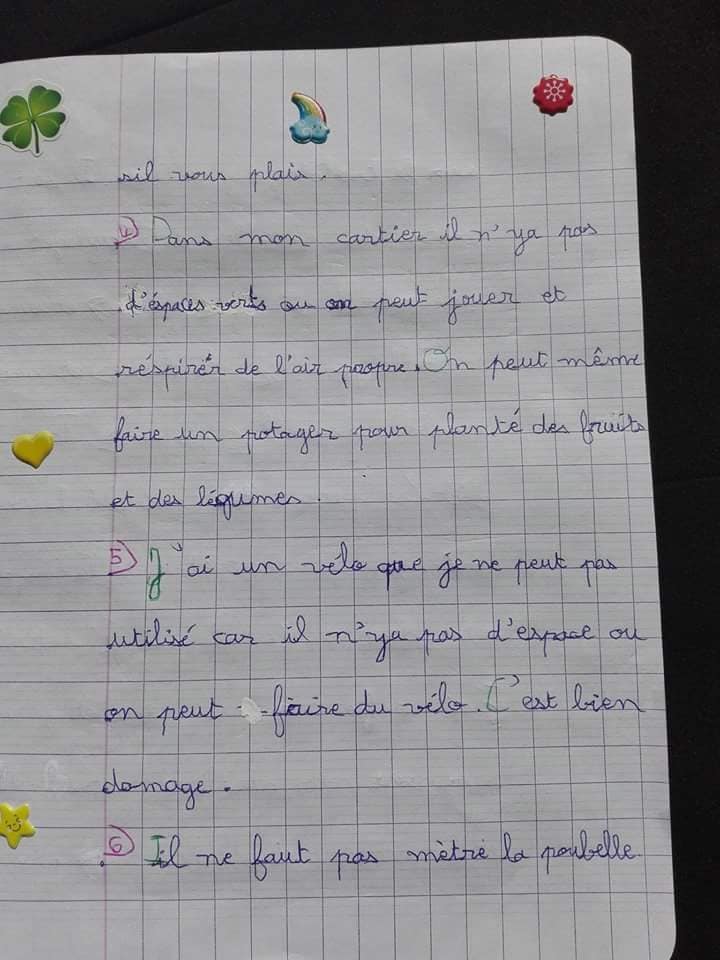 sil vous plais.
4) Dans mon cartier il n'ya pas
d'éspaces verts ou on peut jouer et
réspirér de l'air propre. On peut même
faire un potager pour planté des fruits
et des légumes.
5) J'ai un vélo que je ne peut pas
utilisé car il n'ya pas d'espace ou
on peut faire du vélo. C'est bien
domage.
6) Il ne faut pas mètre la poubelle